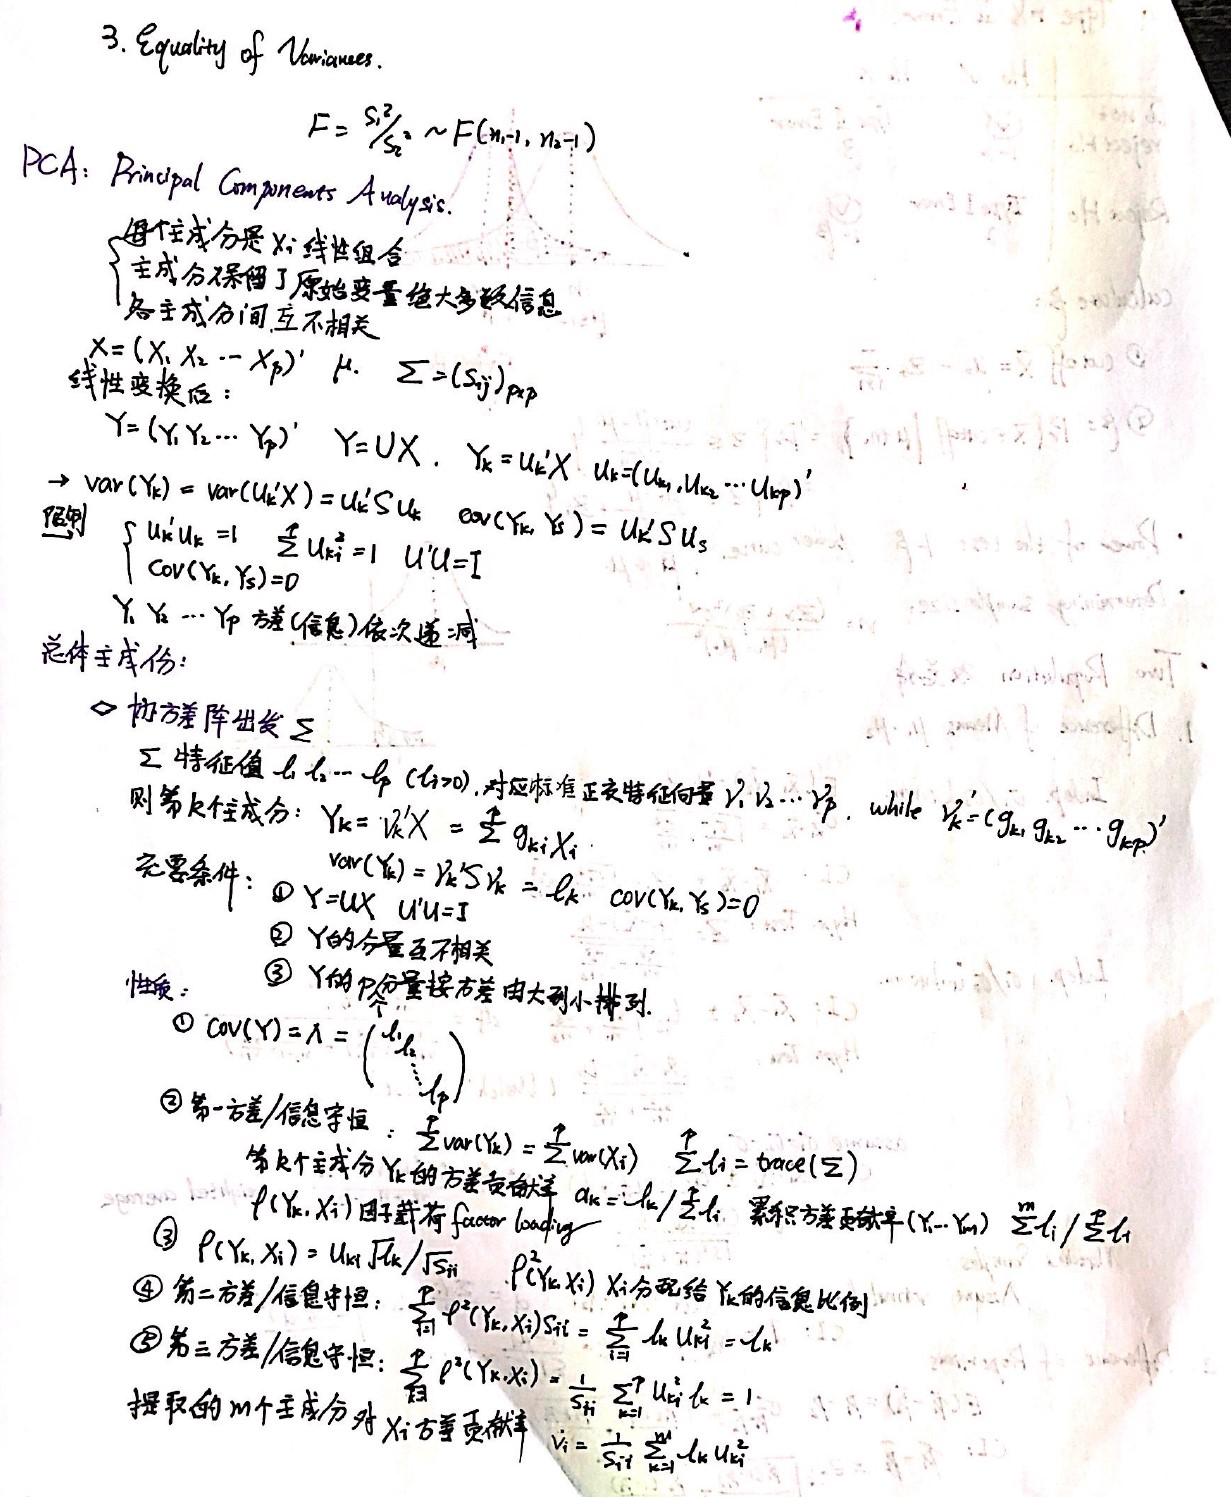 3. Equality of Variances.
F = S₁²/S₂² ~ F(n₁-1, n₂-1)
PCA: Principal Components Analysis.
每个主成分是 Xi 线性组合
主成分保留了原始变量绝大多数信息
各主成分间互不相关
X = (X₁ X₂ ··· Xp)' μ. Σ = (Sij)p×p
线性变换后:
Y = (Y₁ Y₂ ··· Yp)' Y = UX. Yk = uk'X uk = (uk₁, uk₂ ··· ukp)'
→ var(Yk) = var(uk'X) = uk'S uk cov(Yk, Ys) = uk'S us
限制 { uk'uk = 1 Σᵖ uki² = 1 U'U = I
cov(Yk, Ys) = 0
Y₁ Y₂ ··· Yp 方差(信息)依次递减
总体主成份:
◇ 协方差阵出发 Σ
Σ 特征值 l₁ l₂ ··· lp (li>0), 对应标准正交特征向量 γ₁ γ₂ ··· γp, while γk' = (gk₁ gk₂ ··· gkp)'
则第k个主成分: Yk = γk'X = Σᵖ gki Xi.
var(Yk) = γk'Sγk = lk cov(Yk, Ys) = 0
充要条件: ① Y = UX U'U = I
② Y的分量互不相关
③ Y的p个分量按方差由大到小排列.
性质:
① cov(Y) = Λ = ( l₁ l₂ ⋱ lp )
② 第一方差/信息守恒: Σᵖ var(Yk) = Σᵖ var(Xi) Σᵖ li = trace(Σ)
第k个主成分Yk的方差贡献率 ak = lk / Σᵖ li 累积方差贡献率(Y₁···Ym) Σᵐ li / Σᵖ li
ρ(Yk, Xi) 因子载荷 factor loading
③ ρ(Yk, Xi) = uki √lk / √sii ρ²(Yk, Xi) Xi 分配给 Yk 的信息比例
④ 第二方差/信息守恒: Σᵖᵢ₌₁ ρ²(Yk, Xi) Sii = Σᵖᵢ₌₁ lk uki² = lk
⑤ 第三方差/信息守恒: Σᵖ ρ²(Yk, Xi) = 1/Sii Σᵖₖ₌₁ uki² lk = 1
提取的m个主成分对 Xi 方差贡献率 vi = 1/Sii Σᵐₖ₌₁ lk uki²